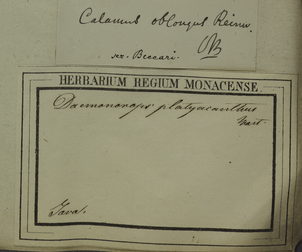 Calamus oblongus Reinw.
sec. Beccari.
HERBARIUM REGIUM MONACENSE
Daemonorops platyacanthus
Mart.
Java.